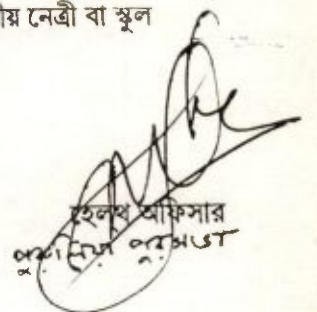 য় নেত্রী বা স্কুল
হেলথ অফিসার
পুরুলিয়া পুরসভা